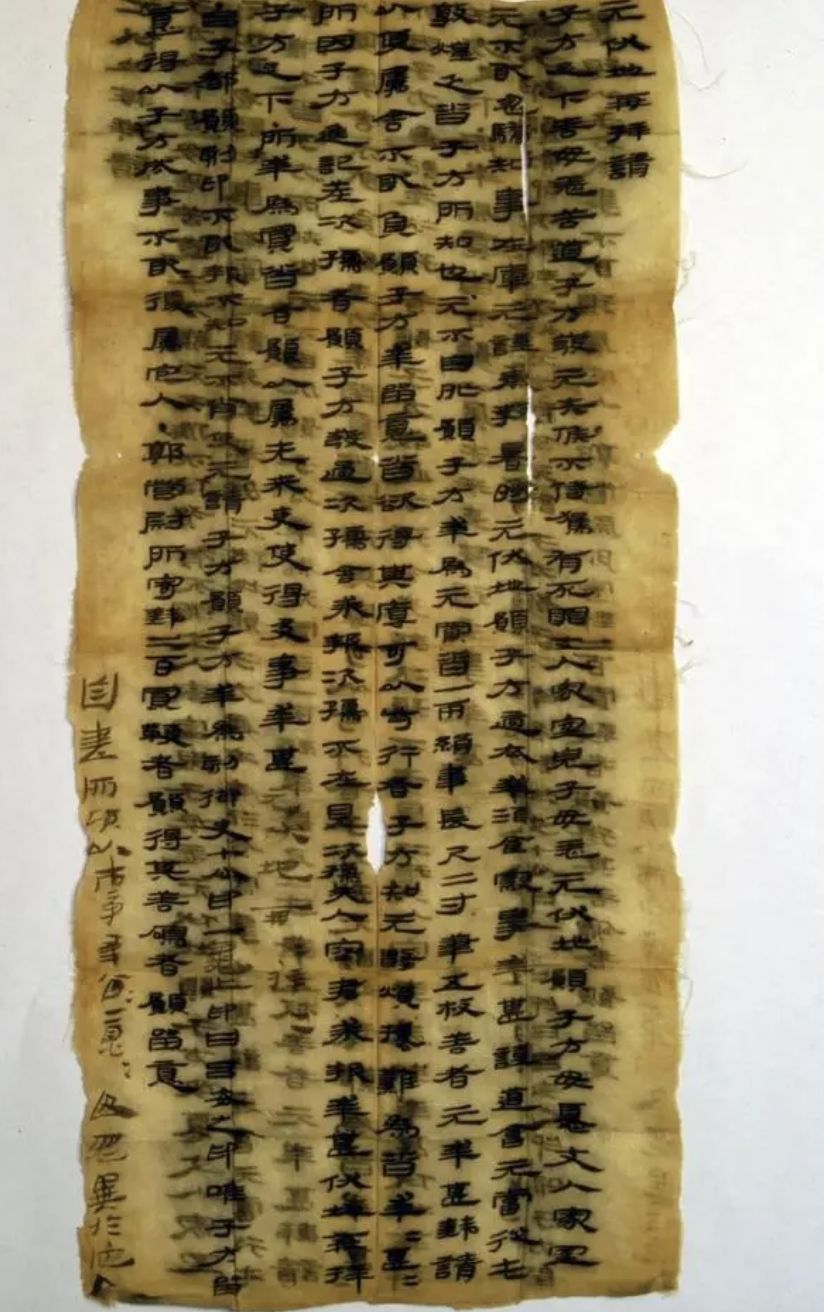 元伏地再拜請
子方足下善毋恙苦道子方發元失候不侍駕有死罪丈人家室兒子毋恙元伏地願子方毋憂丈人家室
元不敢忽驕知事在庫元謹奉教暑時元伏地願子方適衣幸酒食察事幸甚謹道會元當從屯
敦煌乏沓子方所知也元不自外願子方幸為元買沓一兩絹韋長尺二寸筆五枚善者元幸甚錢請
以便屬舍不敢負願子方幸留意沓欲得其厚可以步行者子方知元數煩擾難為沓幸=甚=
所因子方進記差次孺者願子方發過次孺舍求報次孺不在見次孺夫人容君求報幸甚伏地再拜
子方足下所幸為買沓者願以屬先來吏使得及事幸甚元伏地再拜
呂子都願刻印不敢報不知元不肖使元請子方願子方幸為刻御史七分印一龜上印曰呂安之印唯子方留
意得以子方成事不敢復屬它人・郭營尉所寄錢二百買鞭者願得其善鳴者願留意
自書所願以市事幸留=意=毋忽異於它人